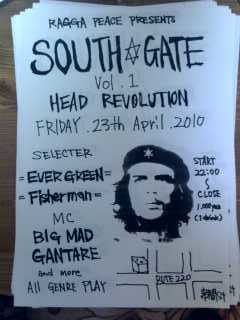 RAGGA PEACE PRESENTS
SOUTH☆GATE
Vol. 1
HEAD REVOLUTION
FRIDAY. 23th April, 2010
SELECTER
=EVER GREEN=
=Fisherman=
MC
BIG MAD
GANTARE
and more
All GENRE PLAY
START
22:00
〜
CLOSE
1,000yen
(1 drink)
ROUTE 220